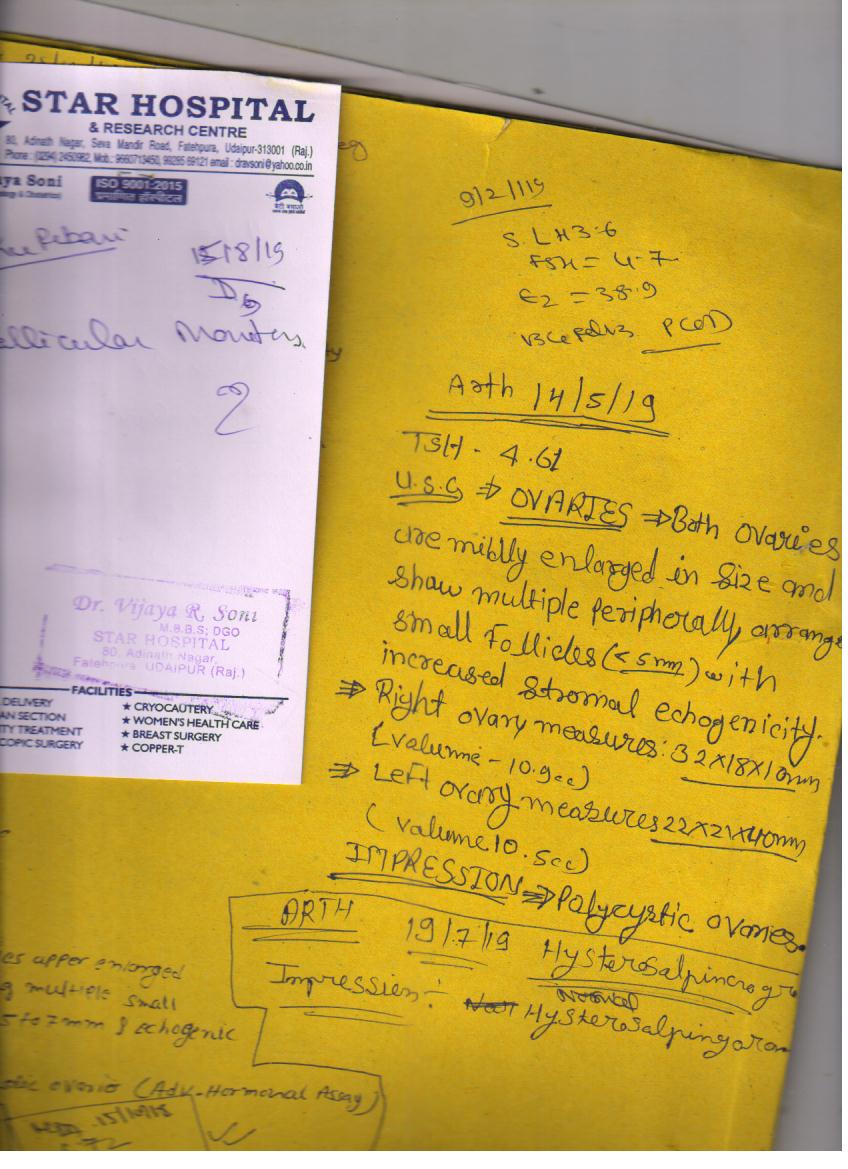 STAR HOSPITAL
& RESEARCH CENTRE
80, Adinath Nagar, Seva Mandir Road, Fatehpura, Udaipur-313001 (Raj.)
Phone : (0294) 2450962, Mob.: 9660713450, 99285 69121 email : dravsoni@yahoo.co.in
aya Soni
ISO 9001:2015
प्रमाणित हॉस्पीटल
Rebari
15/8/19
D9
ellicular Monitors
2
Dr. Vijaya R. Soni
M.B.B.S; DGO
STAR HOSPITAL
80, Adinath Nagar,
Fatehpura UDAIPUR (Raj.)
FACILITIES
DELIVERY
AN SECTION
ITY TREATMENT
COPIC SURGERY
★ CRYOCAUTERY
★ WOMEN'S HEALTH CARE
★ BREAST SURGERY
★ COPPER-T
9/2/119
S. LH 3.6
FSH = 4.7
E2 = 38.9
PCOD
Arth 14/5/19
TSH - 4.61
U.S.G ⇒ OVARIES ⇒ Both ovaries
are mildly enlarged in size and
show multiple peripherally arrange
small follicles (<5mm) with
increased stromal echogenicity.
⇒ Right ovary measures: 32X18X10mm
(volume - 10.9cc)
⇒ Left ovary measures 22X21X40mm
(volume 10.5cc)
IMPRESSION ⇒ Polycystic ovaries.
ARTH 19/7/19 Hysterosalpincogr
Impression: Normal
Hysterosalpingogram
es upper enlarged
g multiple small
5 to 7mm & echogenic
ovaries (Adv-Hormonal Assay)
15/10/18